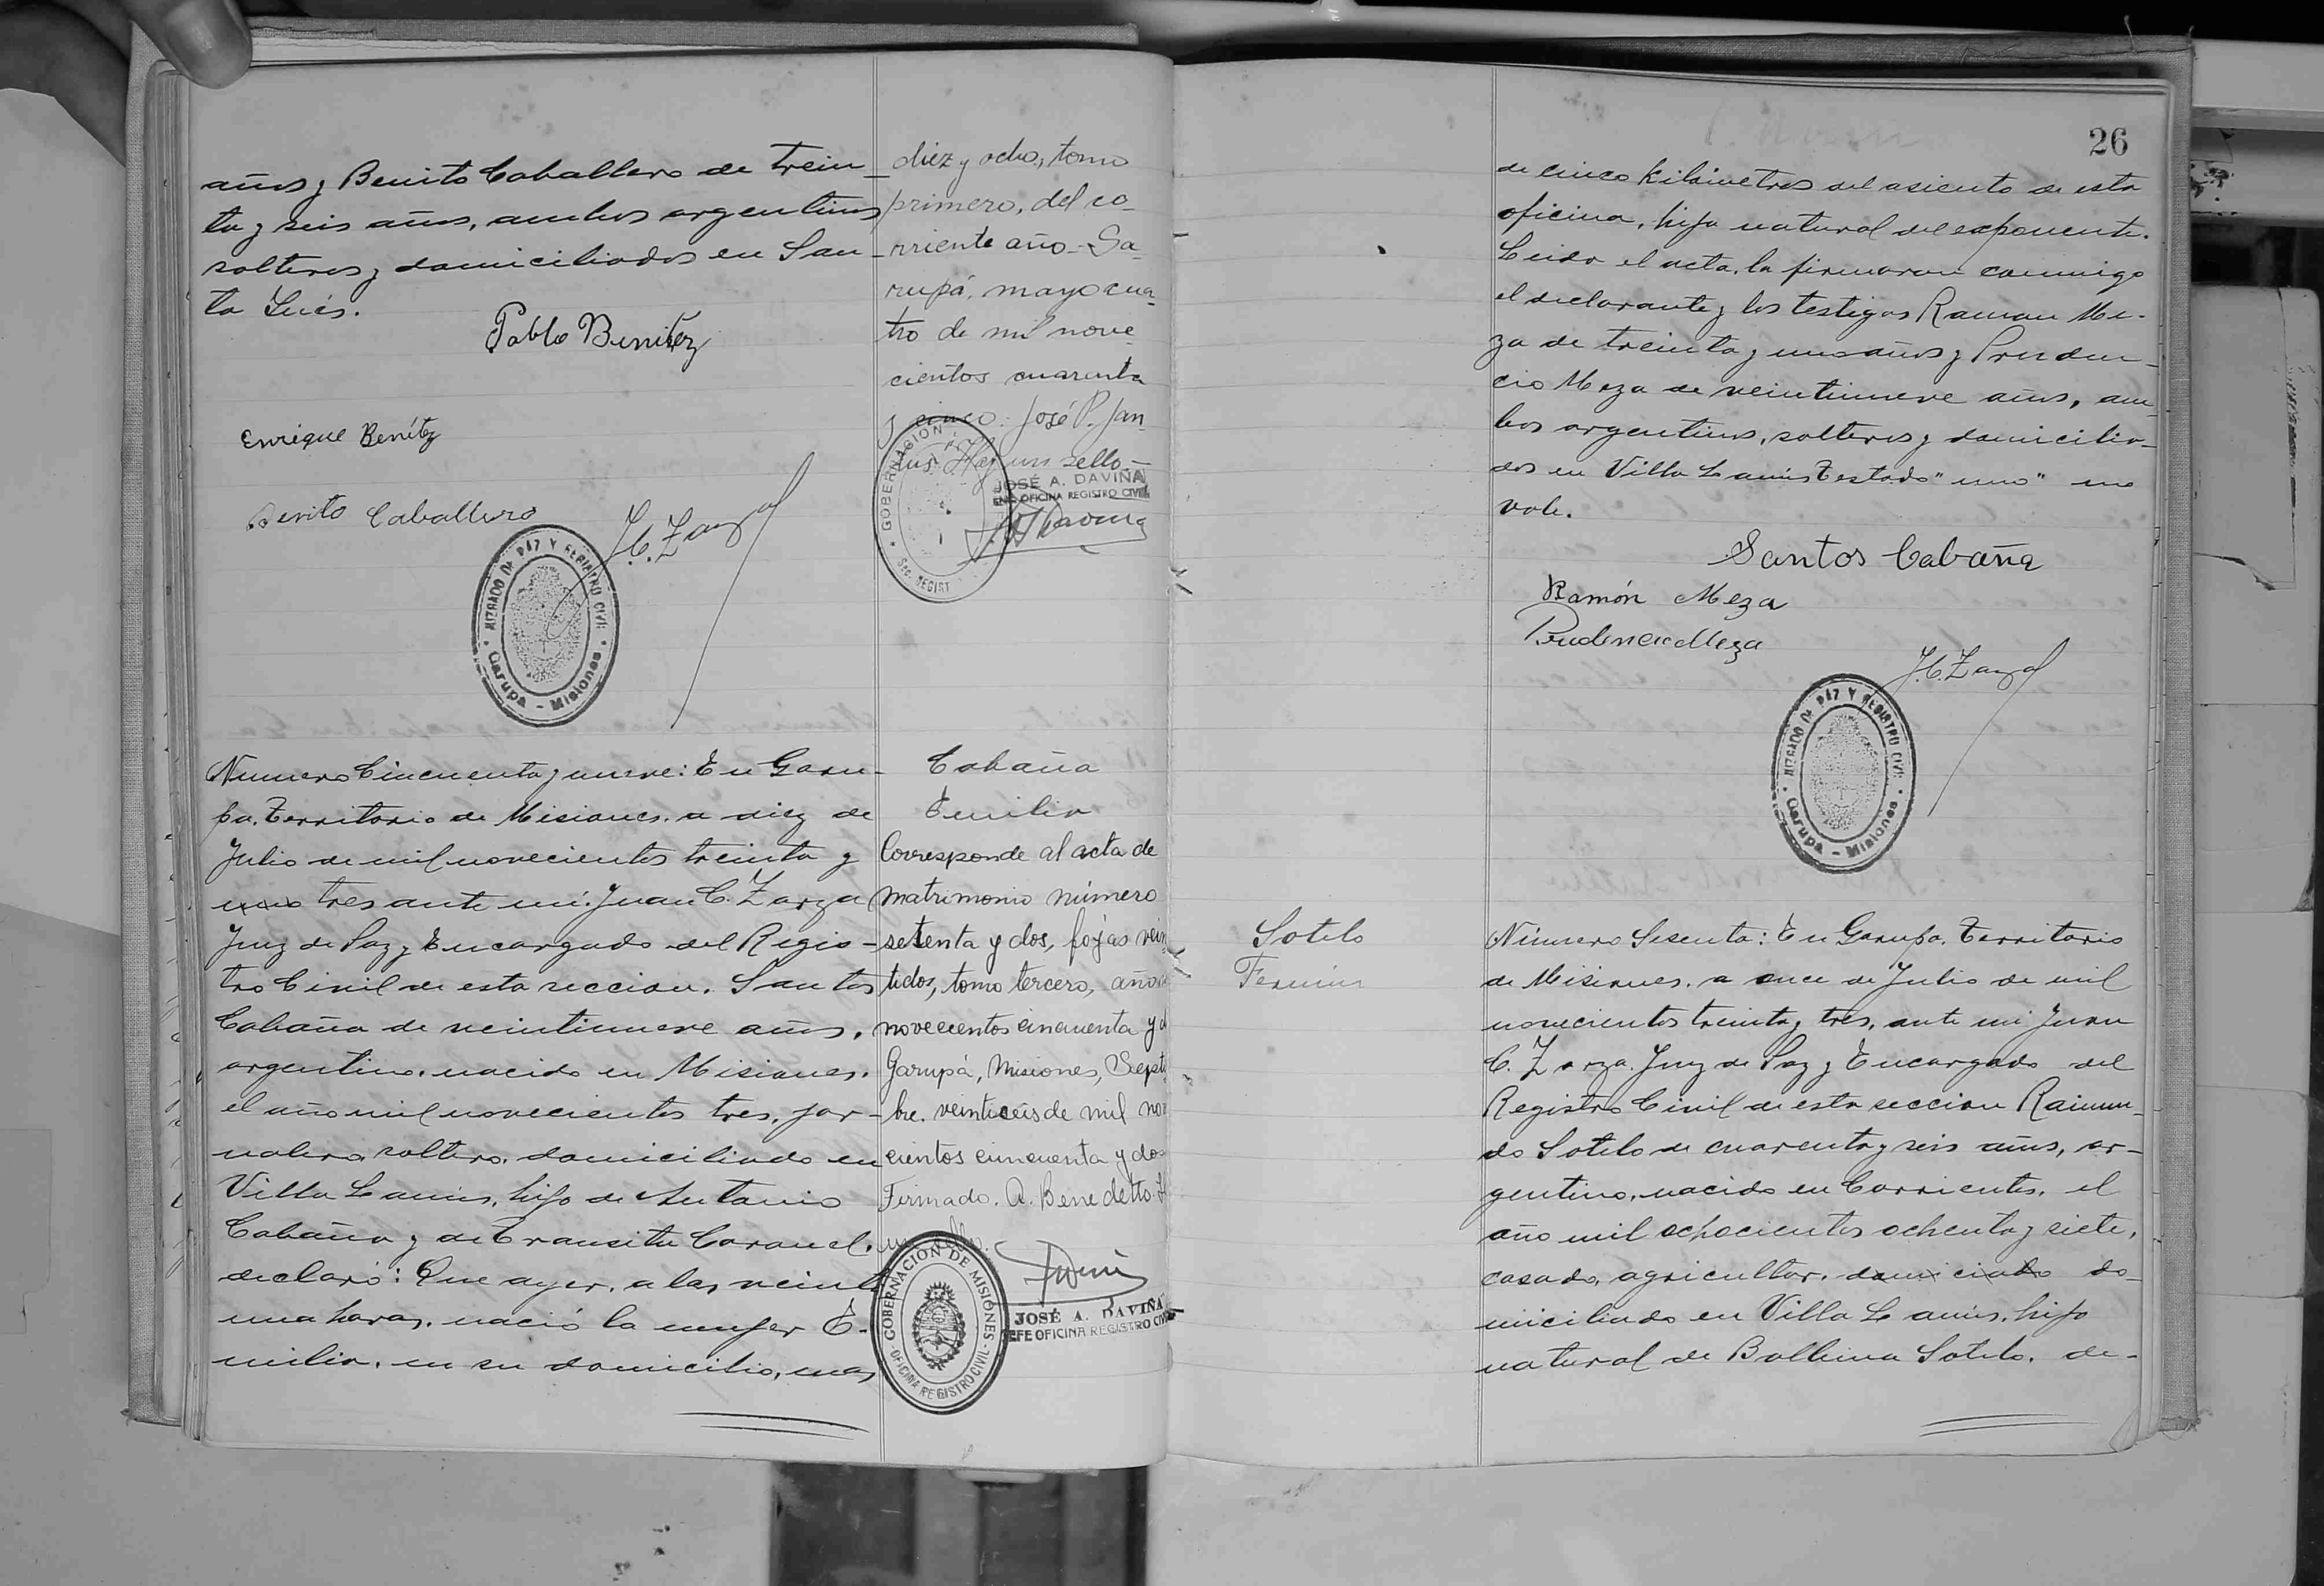 años y Benito Caballero de trein-
ta y seis años, ambos argentinos
solteros y domiciliados en San-
ta Inés.
Pablo Benitez
Enrique Benítez
Benito Caballero
J.C. Zarza
JUZGADO DE PAZ Y REGISTRO CIVIL
Garupá - Misiones
diez y ocho, tomo
primero, del co-
rriente año - Ga-
rupá, mayo cua-
tro de mil nove-
cientos cuarenta
y cinco. José P. Jan-
Hay un sello.-
GOBERNACION
SEC. REGIST
JOSÉ A. DAVIÑA
ENC. OFICINA REGISTRO CIVIL
Numero Cincuenta y nueve: En Garu-
pa, Territorio de Misiones, a diez de
Julio de mil novecientos treinta y
uno tres ante mi: Juan C. Zarza
Juez de Paz y Encargado del Regis-
tro Civil de esta seccion. Santos
Cabaña de veintinueve años,
argentino, nacido en Misiones,
el año mil novecientos tres, jor-
nalero, soltero, domiciliado en
Villa Lanús, hijo de Antonio
Cabaña y de Transita Coronel,
declaró: Que ayer, a las veinti
una horas, nació la mujer E-
milia, en su domicilio, mas
Cabaña
Emilia
Corresponde al acta de
matrimonio número
setenta y dos, fojas vein
tidos, tomo tercero, año
novecientos cincuenta y d
Garupá, Misiones, Septi
bre veintiseis de mil nov
cientos cincuenta y dos
Firmado. A. Benedetto. H
un sello.
GOBERNACIÓN DE MISIONES
OFICINA REGISTRO CIVIL
JOSÉ A. DAVIÑA
JEFE OFICINA REGISTRO CIVIL
26
de cinco kilómetros del asiento de esta
oficina, hija natural del exponente.
Leida el acta, la firmaron conmigo
el declarante y los testigos Ramon Me-
za de treinta y un años y Pruden-
cio Meza de veintinueve años, am-
bos argentinos, solteros y domicilia-
dos en Villa Lanús Testado "uno" no
vale.
Santos Cabaña
Ramón Meza
Prudencio Meza
J.C. Zarza
JUZGADO DE PAZ Y REGISTRO CIVIL
Garupá - Misiones
Sotelo
Fermin
Número Sesenta: En Garupa, Territorio
de Misiones, a once de Julio de mil
novecientos treinta y tres, ante mi Juan
C. Zarza, Juez de Paz y Encargado del
Registro Civil de esta seccion Raimun-
do Sotelo de cuarenta y seis años, ar-
gentino, nacido en Corrientes, el
año mil ochocientos ochenta y siete,
casado, agricultor, domiciado do-
miciliado en Villa Lanús, hijo
natural de Balbina Sotelo, de-